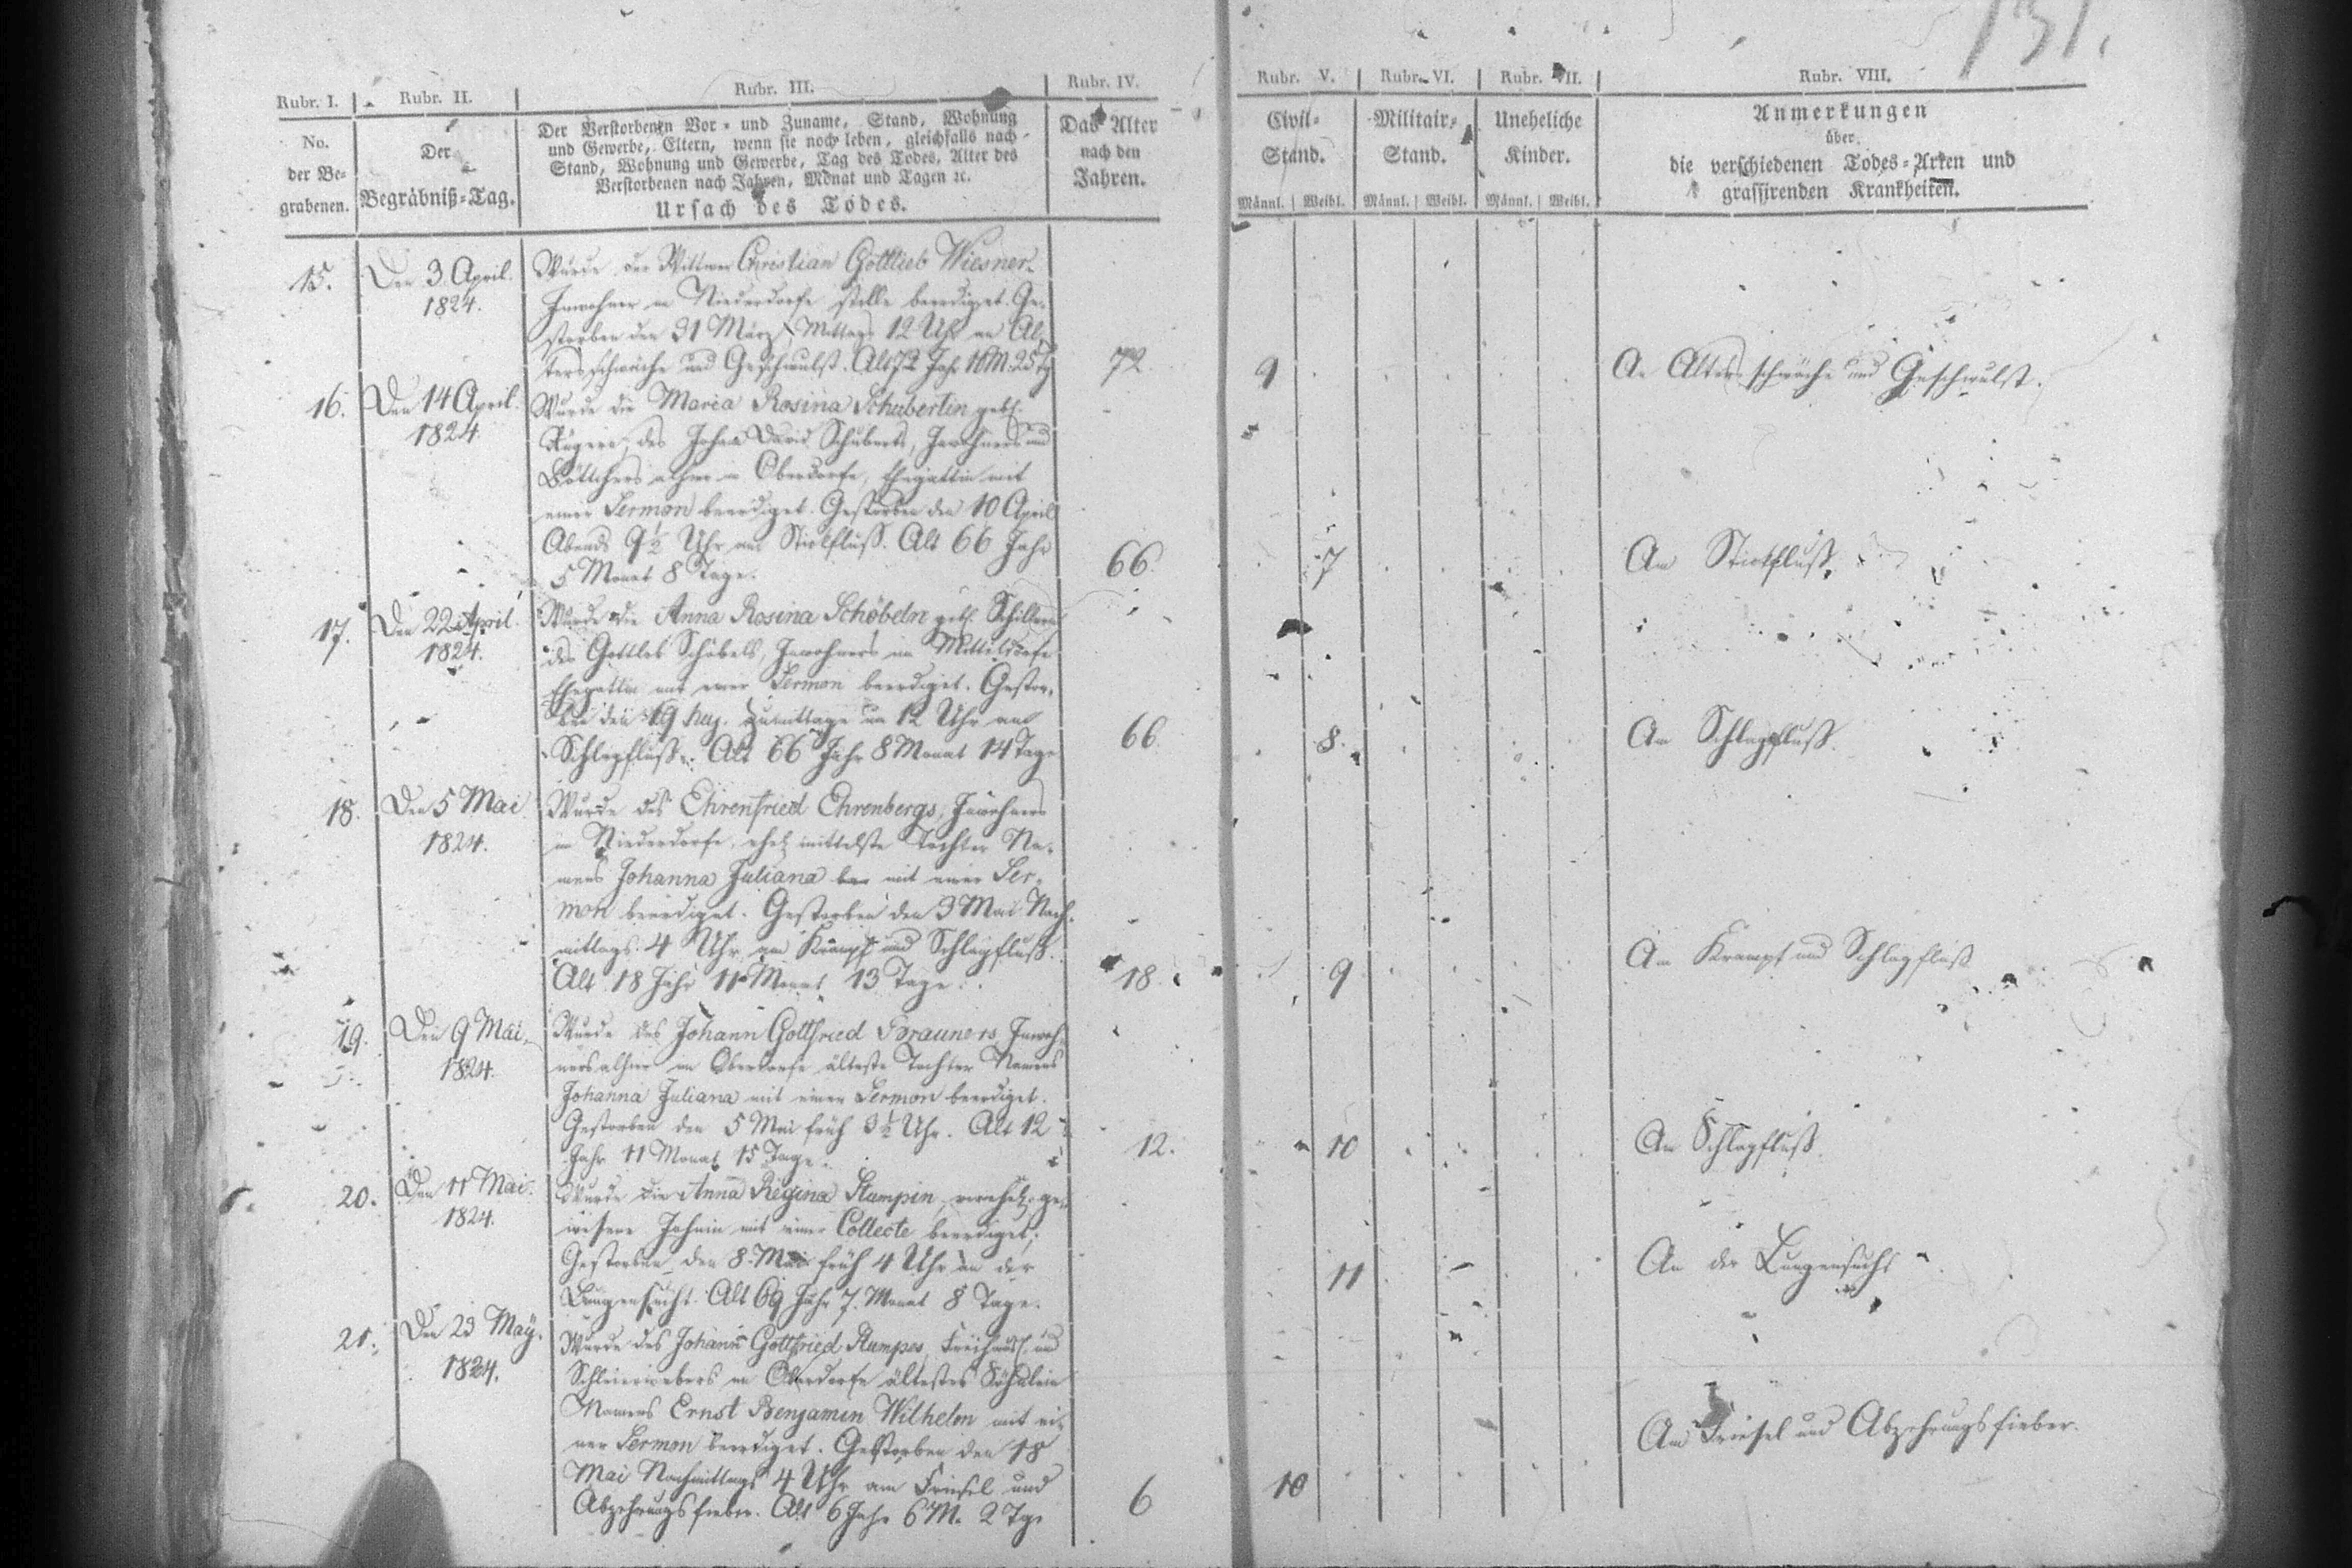 131.
Rubr. I. Rubr. II. Rubr. III. Rubr. IV. Rubr. V. Rubr. VI. Rubr. VII. Rubr. VIII.
No.
der Be-
grabenen.
Der
Begräbniß-Tag.
Der Verstorbenen Vor- und Zuname, Stand, Wohnung
und Gewerbe, Eltern, wenn sie noch leben, gleichfalls nach
Stand, Wohnung und Gewerbe, Tag des Todes, Alter des
Verstorbenen nach Jahren, Monat und Tagen ꝛc.
Ursach des Todes.
Das Alter
nach den
Jahren.
Civil-
Stand.
Militair-
Stand.
Uneheliche
Kinder.
Männl. Weibl. Männl. Weibl. Männl. Weibl.
Anmerkungen
über
die verschiedenen Todes-Arten und
grassirenden Krankheiten.
15.
Den 3 April.
1824.
Wurde der Wittwer Christian Gottlieb Wiesner
Inwohner in Niederdorfe stille beerdiget. Ge-
storben den 31 März Mittags 12 Uhr an Al-
tersschwäche und Geschwulst. Alt 72 Jahr 10 M. 25 Tg
72.
9
An Altersschwäche und Geschwulst.
16.
Den 14 April.
1824.
Wurde die Maria Rosina Schubertin geb.
des Johann David Schuberts, Inwohners und
Böttchers alhier in Oberdorfe, Ehegattin mit
einer Sermon beerdiget. Gestorben den 10 April
Abends 9½ Uhr am Stickfluß. Alt 66 Jahr
5 Monat 8 Tage.
66.
7
Am Stickfluß.
17.
Den 22 April.
1824.
Wurde die Anna Rosina Schöbeln geb. Schillern
des Gottlob Schöbels, Inwohners im Mitteldorfe
Ehegattin mit einer Sermon beerdiget. Gestor-
ben den 19 huj. zumittage um 12 Uhr am
Schlagfluß. Alt 66 Jahr 8 Monat 14 Tage
66.
8.
Am Schlagfluß.
18.
Den 5 Mai
1824.
Wurde des Ehrenfried Ehrenbergs, Inwohners
in Niederdorfe, ehel. mittelste Tochter Na-
mens Johanna Juliana mit einer Ser-
mon beerdiget. Gestorben den 3 Mai Nach-
mittags 4 Uhr am Krampf und Schlagfluß.
Alt 18 Jahr 11 Monat 13 Tage.
18.
9
Am Krampf und Schlagfluß
19.
Den 9 Mai,
1824.
Wurde des Johann Gottfried Brauners, Inwoh-
ners alhier im Oberdorfe älteste Tochter Namens
Johanna Juliana mit einer Sermon beerdiget.
Gestorben den 5 Mai früh 3½ Uhr. Alt 12
Jahr 11 Monat 15 Tage.
12.
10
Am Schlagfluß.
20.
Den 11 Mai.
1824.
Wurde die Anna Regina Stumpin, verehel. ge-
wesene Jahnin mit einer Collecte beerdiget;
Gestorben den 8. Mai früh 4 Uhr an der
Lungensucht. Alt 69 Jahr 7. Monat 8 Tage.
11
An der Lungensucht
21.
Den 23 Maÿ.
1824.
Wurde des Johann Gottfried Stumpes, und
Schleierwebers in Oberdorfe ältestes Söhnlein
Namens Ernst Benjamin Wilhelm mit ei-
ner Sermon beerdiget. Gestorben den 18
Mai Nachmittags 4 Uhr am Friesel und
Abzehrungsfieber. Alt 6 Jahr 6 M. 2 Tg.
6
10
Am Friesel und Abzehrungsfieber.